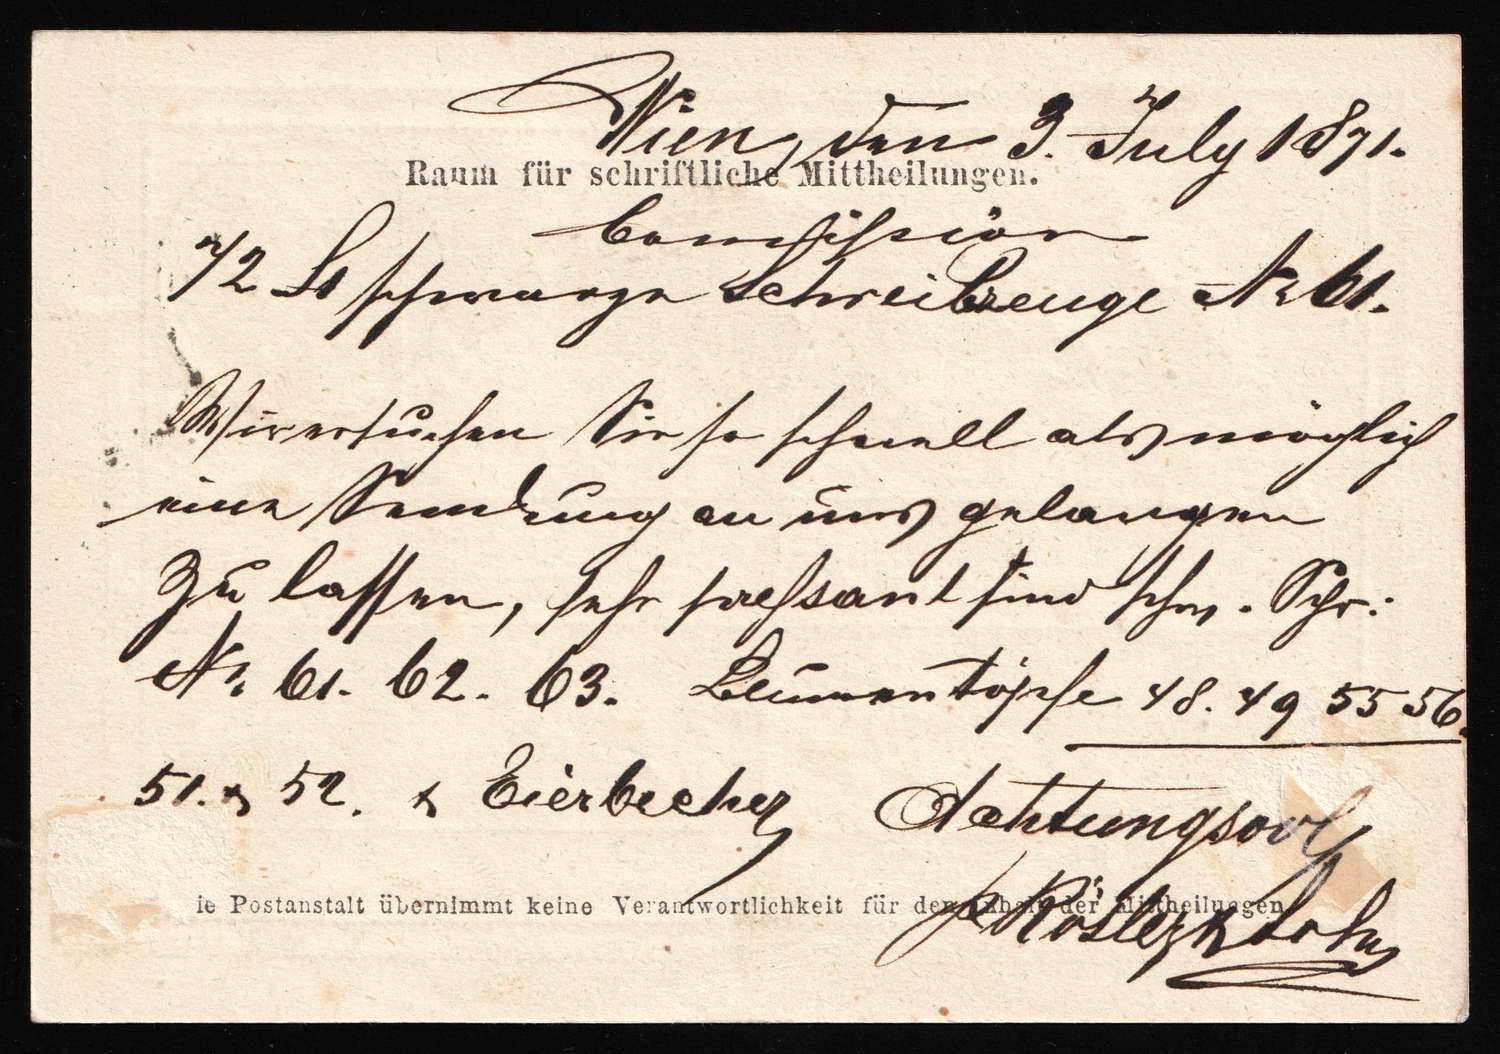 Wien, den 3. July 1871.
Raum für schriftliche Mittheilungen.
Comission
72 St schwarze Schreibzeuge No 61.
Wir ersuchen Sie so schnell als möglich
eine Sendung an uns gelangen
zu lassen, sehr pressant sind schw. Schr:
No 61. 62. 63. Blumentöpfe 48. 49 55 56.
51. & 52. & Eierbecher
Achtungsvoll
Rösler & Sohn
ie Postanstalt übernimmt keine Verantwortlichkeit für den Inhalt der Mittheilungen